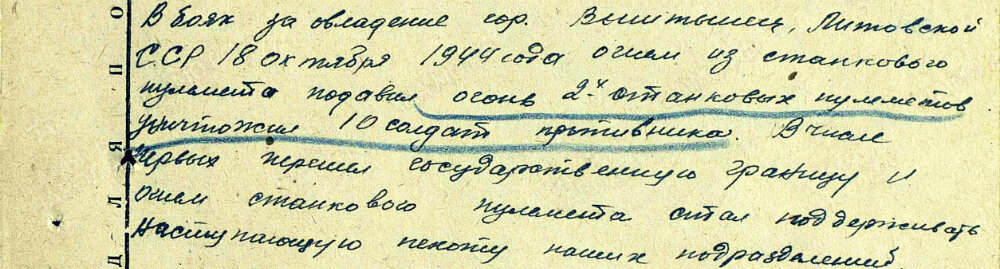 В боях за овладение гор. Виштынец, Литовской
ССР 18 октября 1944 года огнем из станкового
пулемета подавил огонь 2х станковых пулеметов
уничтожил 10 солдат противника. В числе
первых перешел государственную границу и
огнем станкового пулемета стал поддерживать
наступающую пехоту наших подразделений